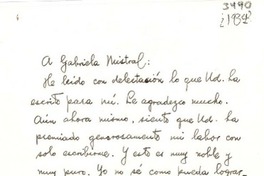 3490
¿1932?
A Gabriela Mistral:
He leido con delectación lo que Ud. ha
escrito para mí. Le agradezco mucho.
Aún ahora mismo, siento que Ud. ha
premiado generosamente mi labor con
solo escribirme. Y esto es muy noble y
muy puro. Yo no sé como pueda lograr-